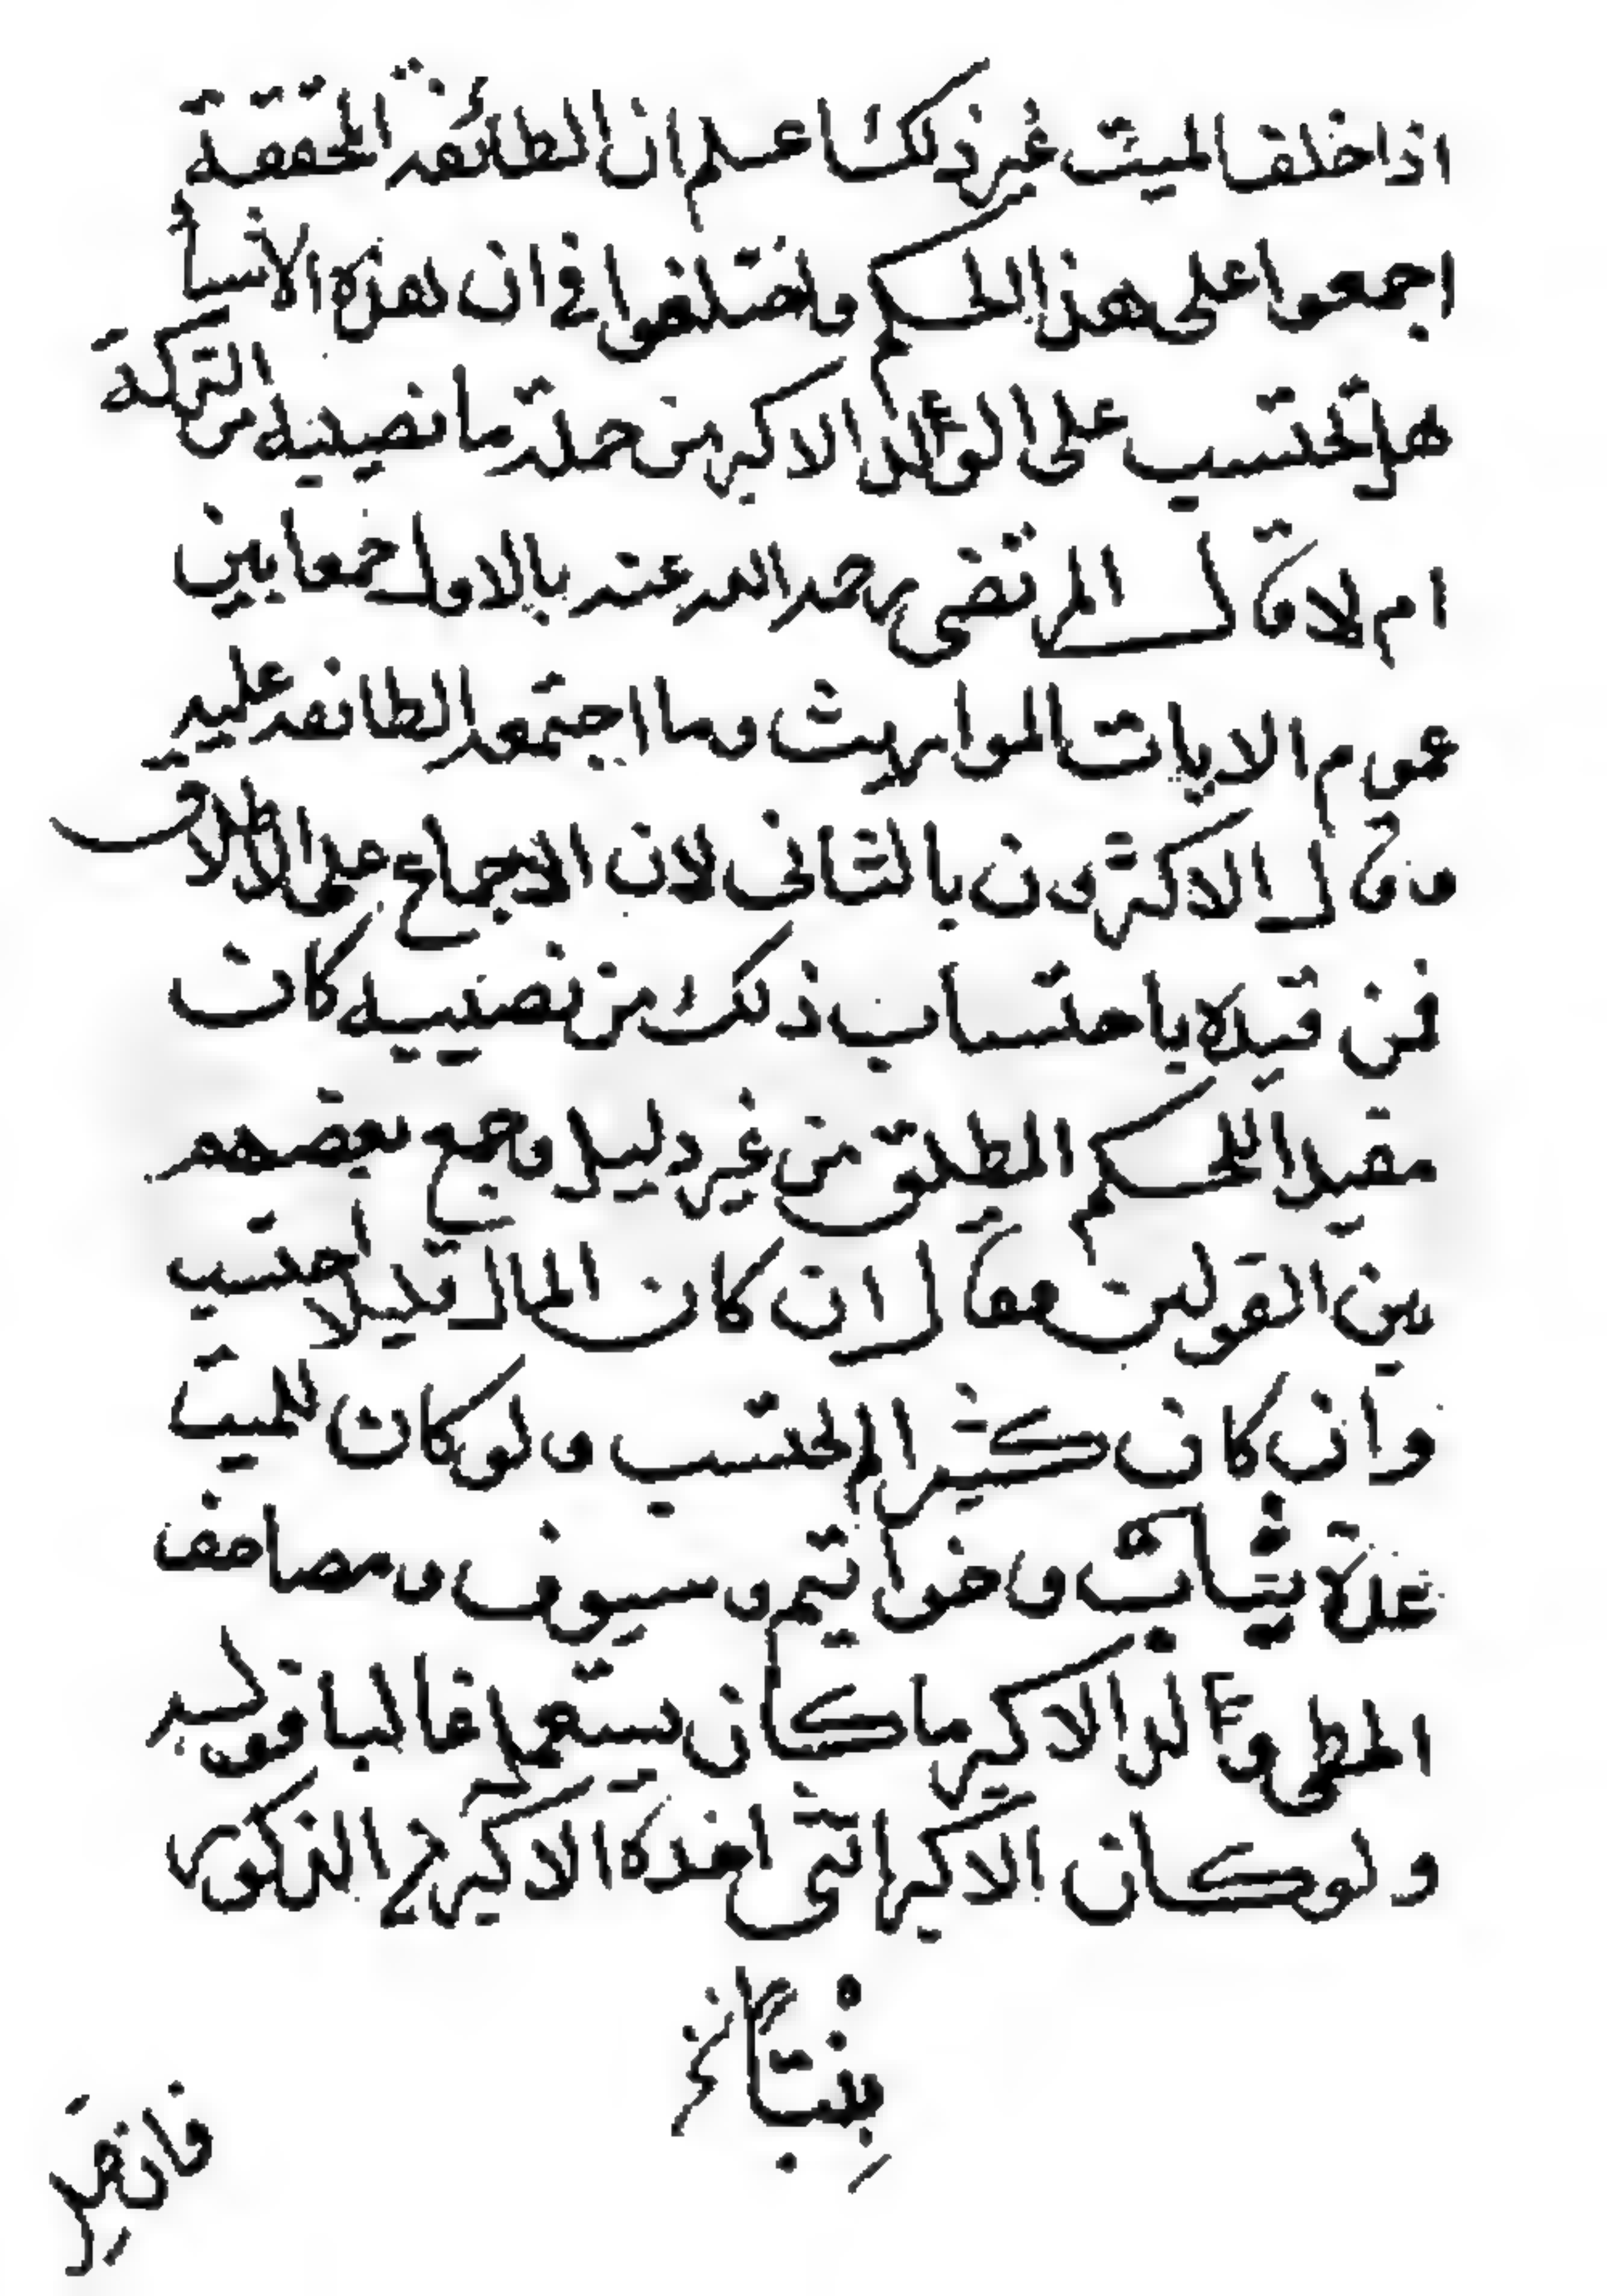 اذا خلف الميت غير ذلك اعلم ان الطائفة المحققة
اجمعوا على هذا الحكم واختلفوا في ان هذه الاشيأ
هل تحتسب على الولد الاكبر من جملة ما نصيبه من التركة
ام لا قال المرتضى رحمه الله عنه بالاول جمعا بين
عموم الايات المواريث وما اجتمعه الطائفه عليه
وقال الاكثرون بالثانى لان الاجماع على الاطلاق
فمن قيده باحتساب ذلك من نصيبه كان
مقيد اللحكم المطلق من غير دليل وجمع بعضهم
بين القولين فقال ان كان المال قليلا احتسب
وان كان كثيرا لم يحتسب ولو كان للميت
عدة ثياب وخواتيم وسيوف ومصاحف
اعطى ولد الاكبر ما كان يستعمله غالبا قوله
ولو كان الاكبر انثى اخذه الاكبر من الذكور
بنتًا
فان لم